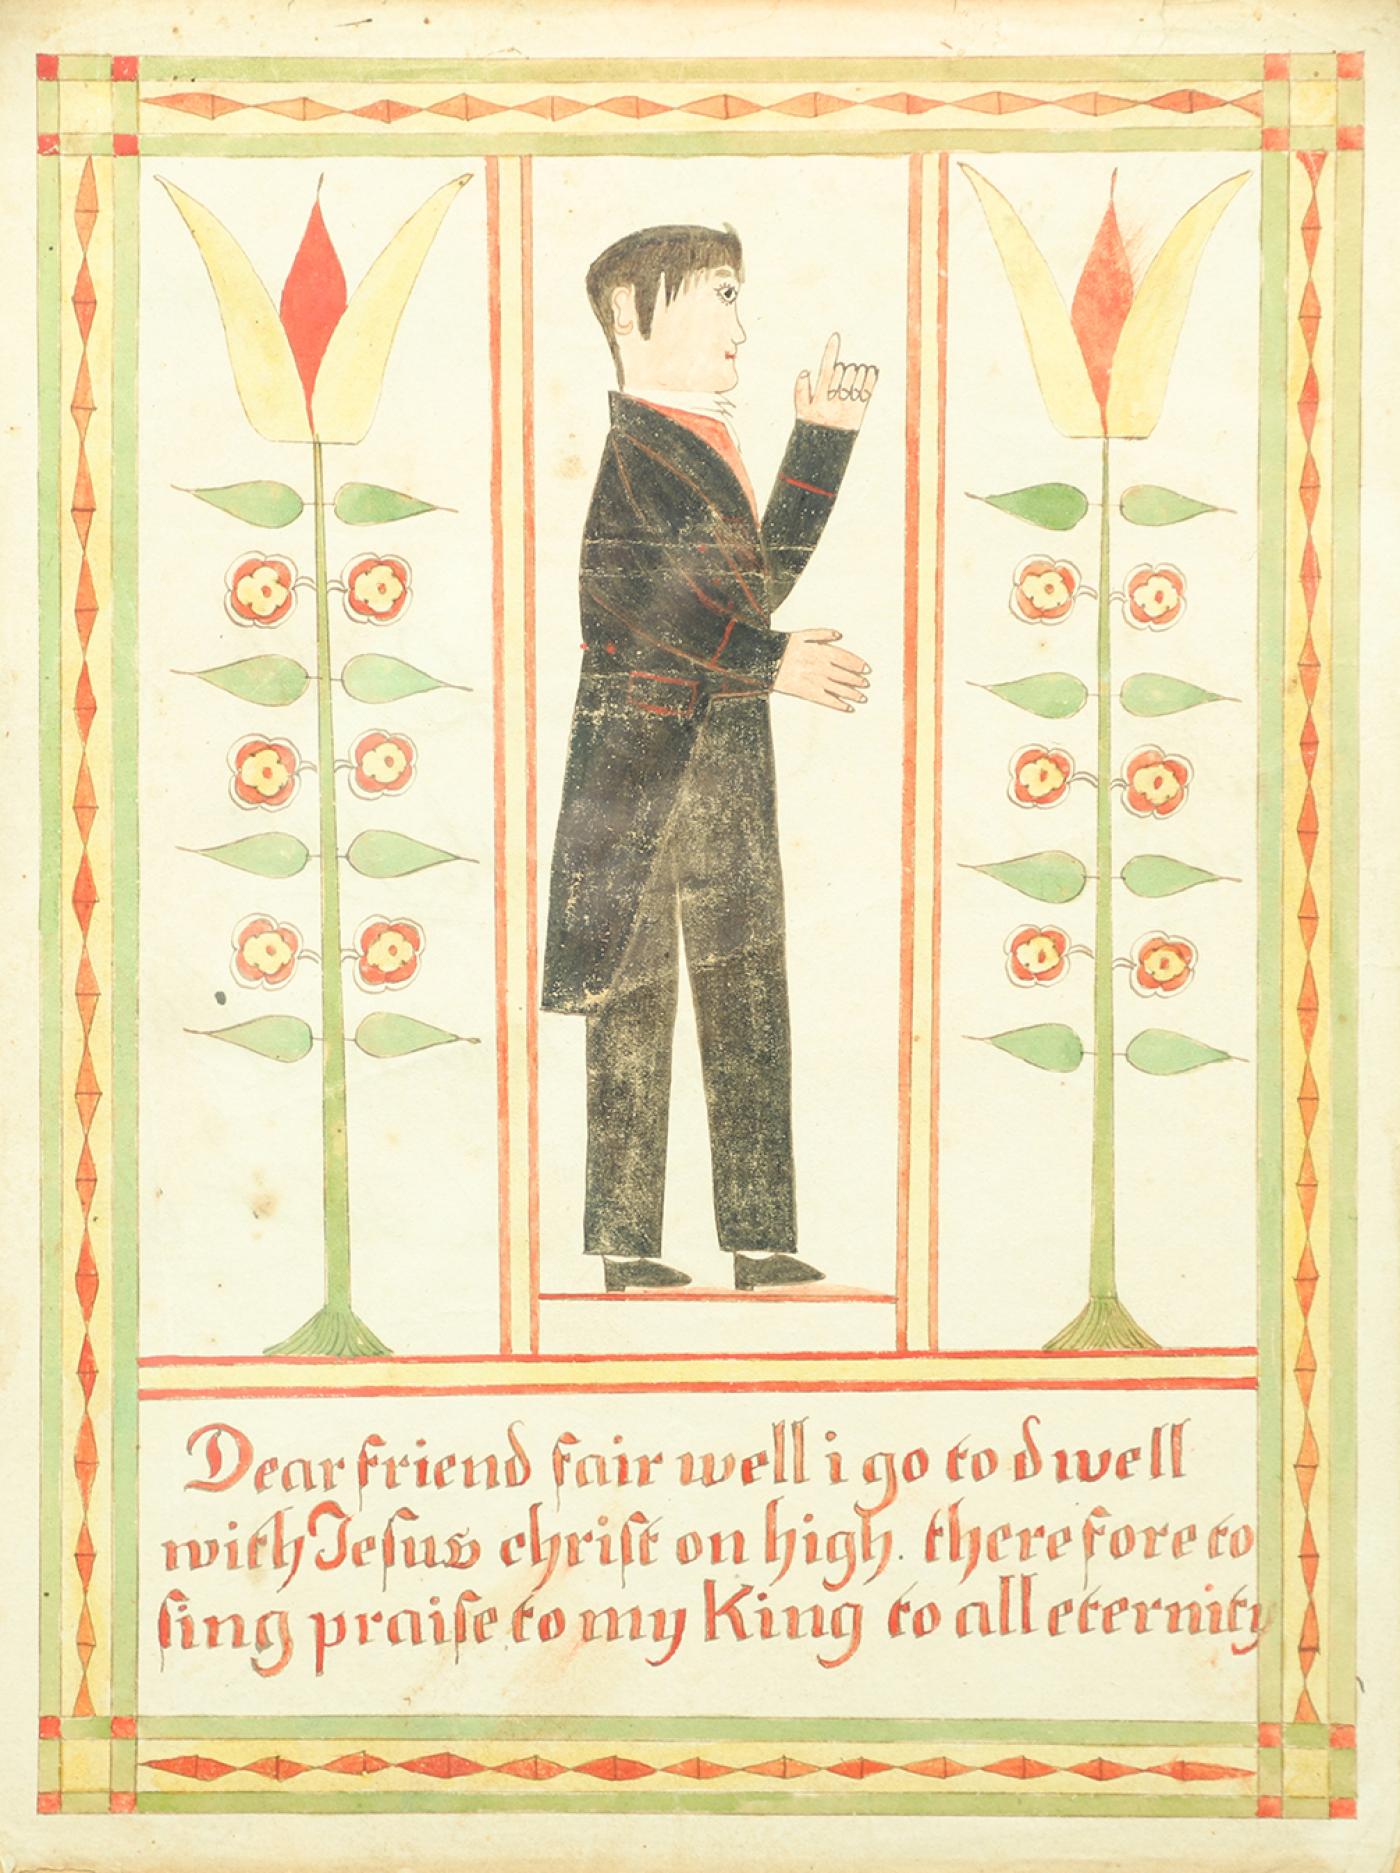 Dear friend fair well i go to dwell
with Jeſus chriſt on high. therefore to
ſing praiſe to my King to all eternity